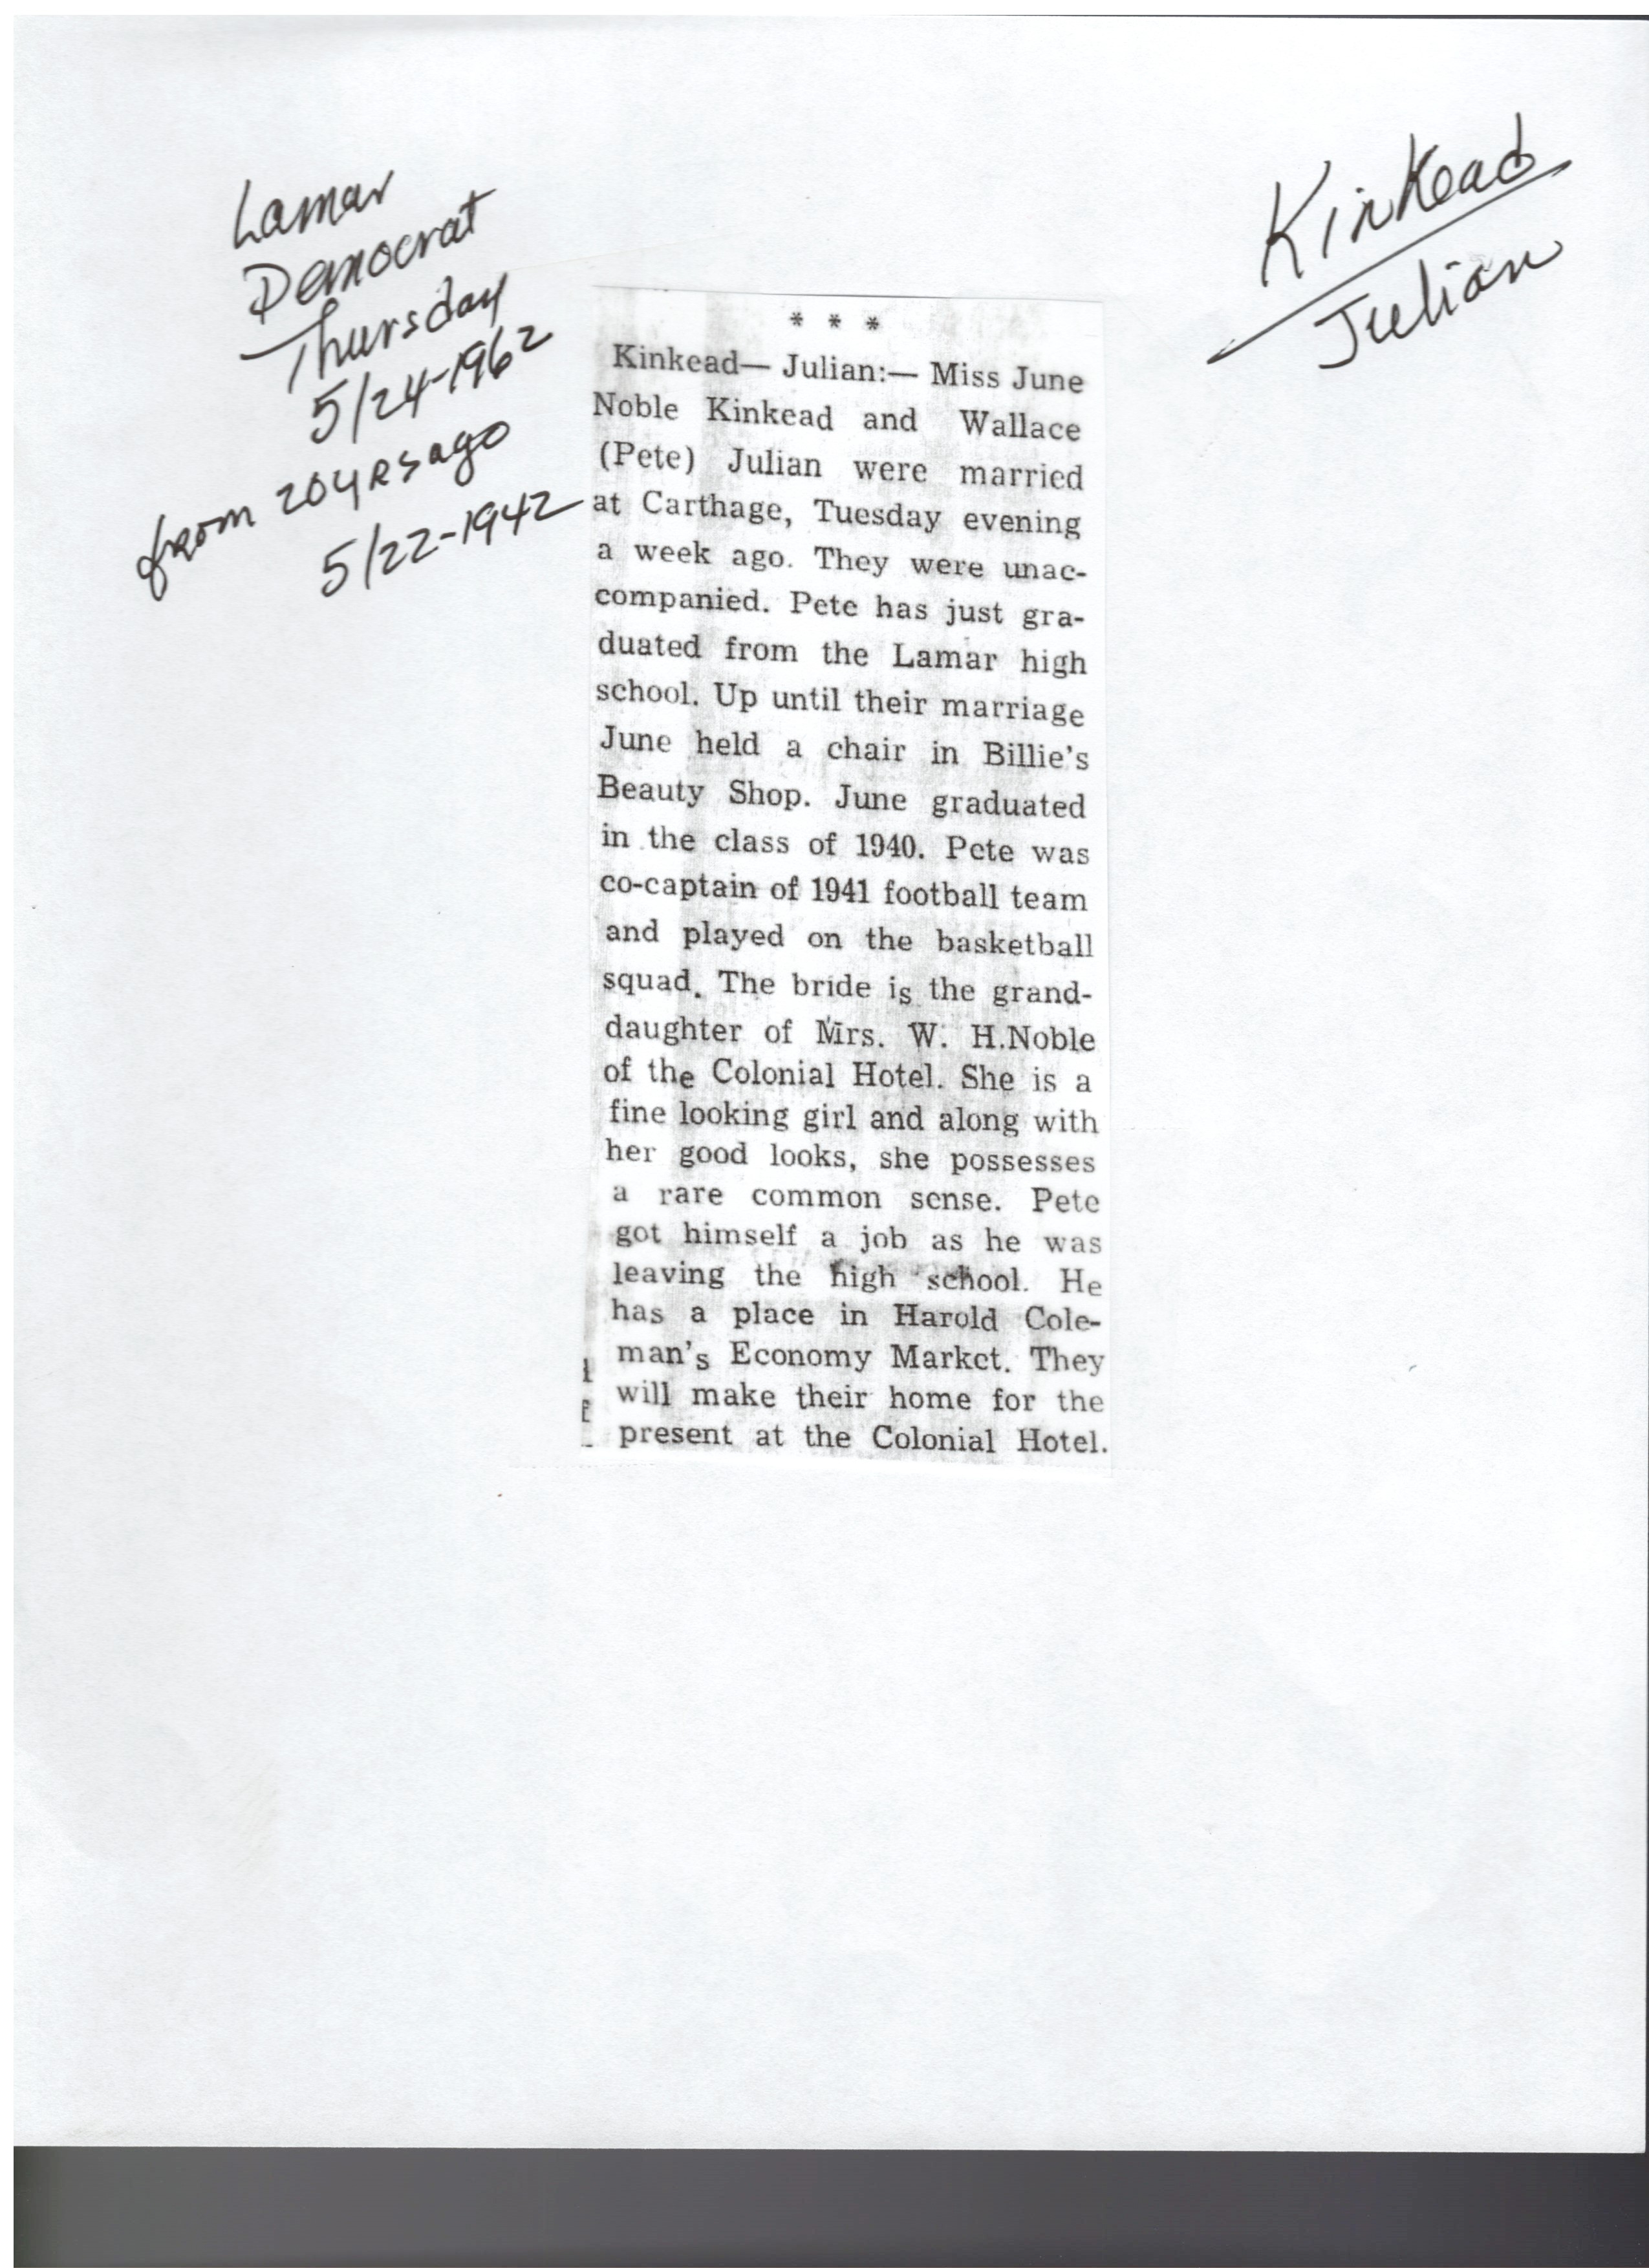 Lamar
Democrat
Thursday
5/24-1962
from 20 yRs ago
5/22-1942
Kinkead
Julian
* * *
Kinkead— Julian:— Miss June
Noble Kinkead and Wallace
(Pete) Julian were married
at Carthage, Tuesday evening
a week ago. They were unac-
companied. Pete has just gra-
duated from the Lamar high
school. Up until their marriage
June held a chair in Billie's
Beauty Shop. June graduated
in the class of 1940. Pete was
co-captain of 1941 football team
and played on the basketball
squad. The bride is the grand-
daughter of Mrs. W. H.Noble
of the Colonial Hotel. She is a
fine looking girl and along with
her good looks, she possesses
a rare common sense. Pete
got himself a job as he was
leaving the high school. He
has a place in Harold Cole-
man's Economy Market. They
will make their home for the
present at the Colonial Hotel.